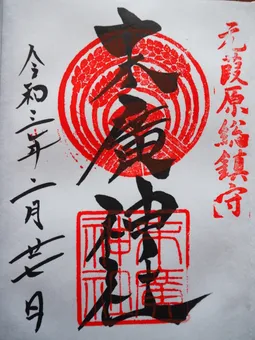 元葭原総鎮守
末廣神社
令和三年二月廿七日
末廣
神社